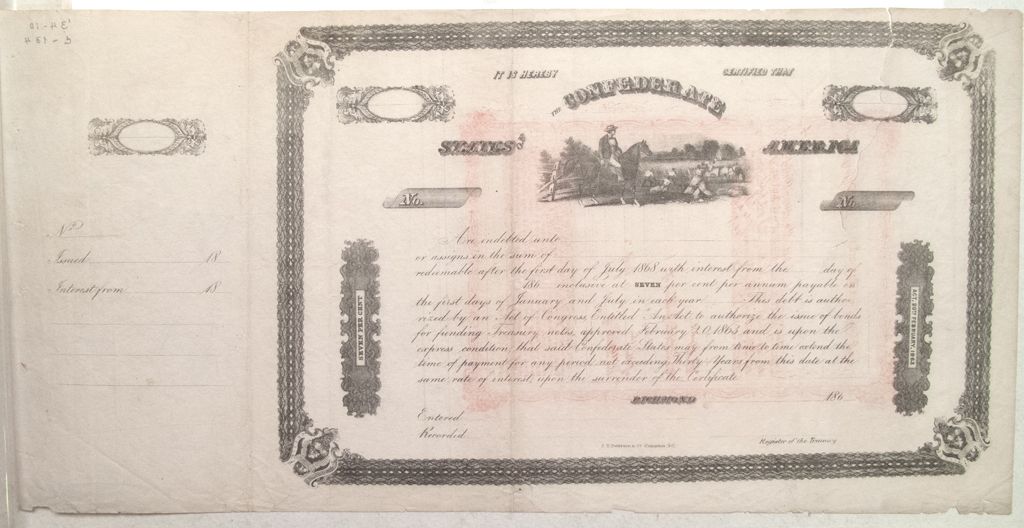 No
Issued 18
Interest from 18
IT IS HEREBY CERTIFIED THAT
THE CONFEDERATE
STATES OF AMERICA
No. No.
Are indebted unto
or assigns in the sum of
redeemable after the first day of July 1868 with interest from the day of
186 inclusive at SEVEN per cent per annum payable on
the first days of January and July in each year. This debt is autho-
rized by an Act of Congress Entitled "An Act to authorize the issue of bonds
for funding Treasury notes, approved February 20, 1863 and is upon the
express condition that said Confederate States may from time to time extend the
time of payment for any period not exceeding Thirty Years from this date at the
same rate of interest, upon the surrender of the Certificate
SEVEN PER CENT
ACT 20TH FEBRUARY, 1863
RICHMOND 186
Entered
Recorded
Register of the Treasury